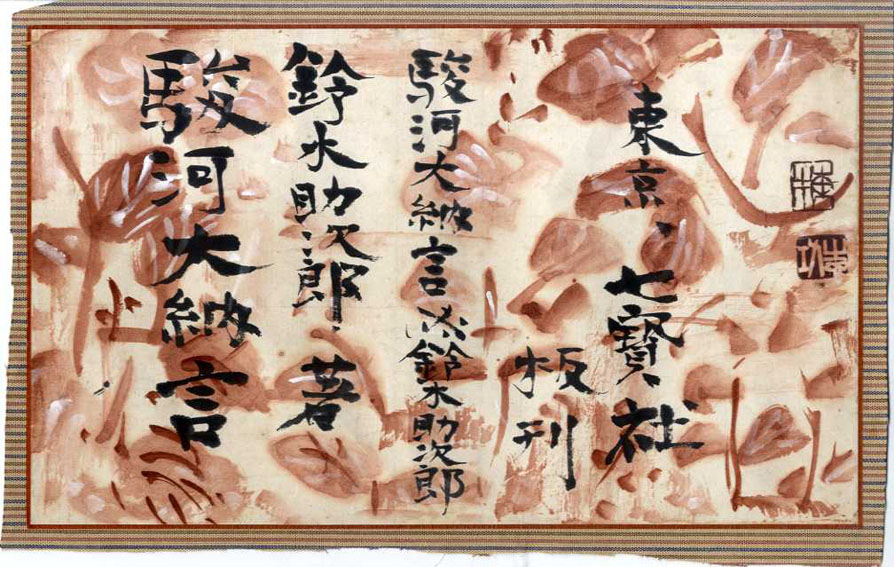 東京、七寳、社
板刊
駿河大納言 鈴木助次郎
鈴木助次郎、著
駿河大納言